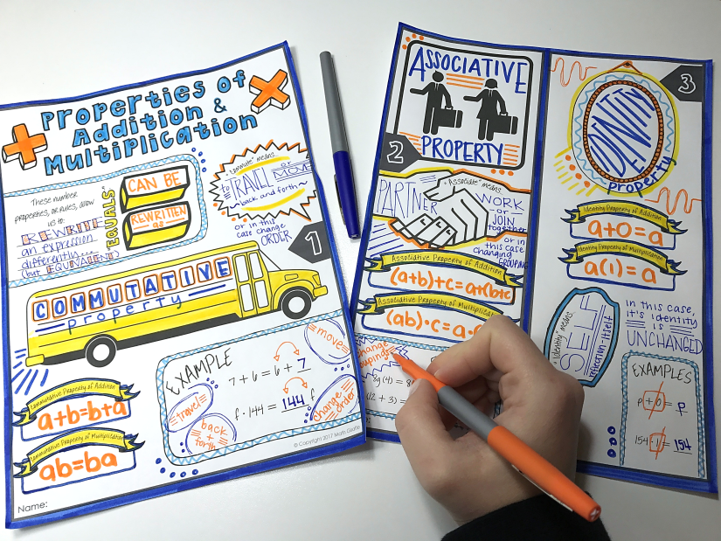 Properties of
Addition &
Multiplication
These number
properties, or rules, allow
us to
REWRITE
an expression
differently...
(but EQUIVALENT)
"EQUALS"
CAN BE
REWRITTEN
as
"Commute" means
to
TRAVEL
or
MOVE
back and forth~
or in this
case change
ORDER
1
COMMUTATIVE
property
Commutative Property of Addition
a+b=b+a
Commutative Property of Multiplication
ab=ba
EXAMPLE
7+6=6+7
f·144=144·f
move
travel
back
+
forth
change
order
© Copyright 2017 Math Giraffe
Name:
ASSOCIATIVE
PROPERTY
2
"Associate" means
PARTNER
WORK
or
JOIN
together
or in
this case
changing
GROUPING
Associative Property of Addition
(a+b)+c=a+(b+c
Associative Property of Multiplica
(ab)·c=a·
change
(4) = 8
(12 + 3) =
3
IDENTITY
property
Identity Property of Addition
a+0=a
Identity Property of Multiplication
a(1)=a
"Identity" means
SELF
reflection/itself
In this case,
it's identity
is
UNCHANGED
EXAMPLES
p+0=p
154·1=154